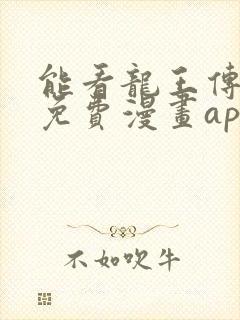 能看龍王傳
免費漫畫ap
不如吹牛